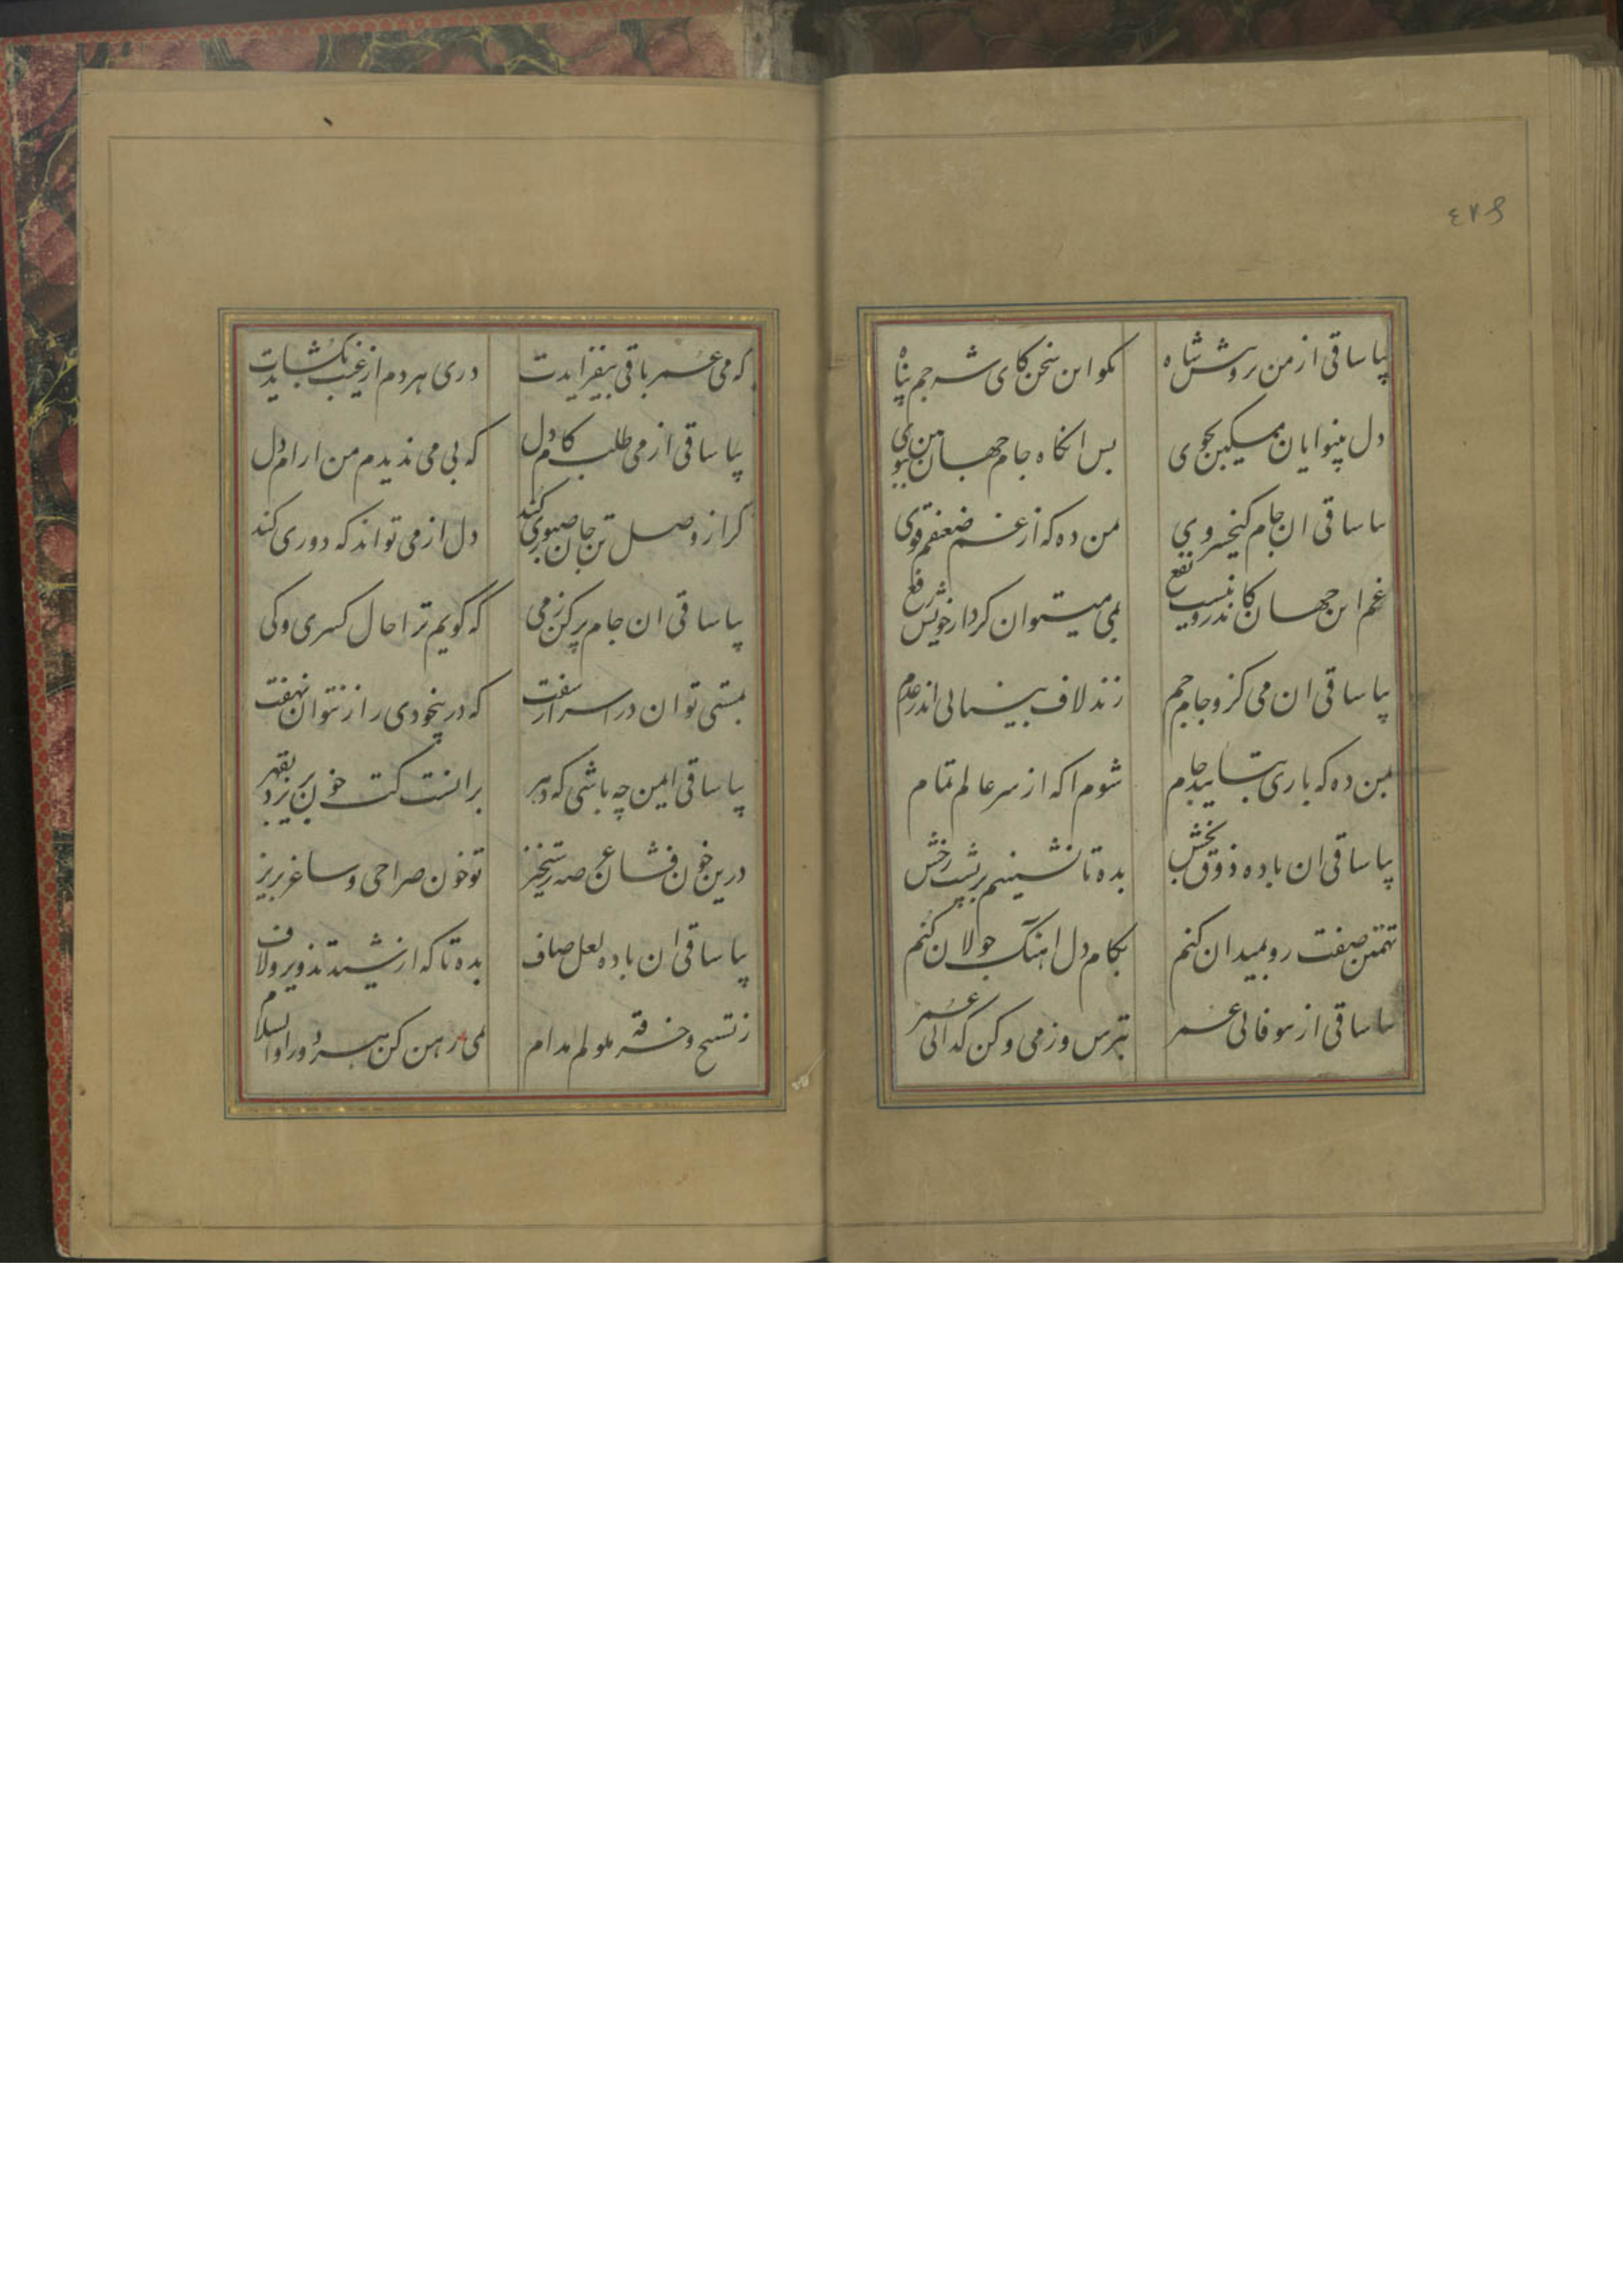 ٤٧٩
بیا ساقی از من برو پیش شاه
بکو این سخن کای شه جم پناه
دل بینوایان مسکین بجوی
بس انکاه جام جهان بین بجوی
بیا ساقی ان جام کیخسروی
بمن ده که از غم ضعفم قوی
غم این جهان کاندرو نیست نفع
بمی میتوان کرد از خویش رفع
بیا ساقی ان می کزو جام جم
زند لاف بینائی اندر عدم
بمن ده که باری بتایید جام
شوم اکه از سر عالم تمام
بیا ساقی ان باده ذوق بخش
بده تا نشینیم بر پشت رخش
تهمتن صفت رو بمیدان کنم
بکام دل اهنگ جولان کنم
بیا ساقی از بیوفائی عمر
بترس و زمی و کن کدائی عمر
که می عمر باقی بیفزایدت
دری هر دم از غیب بکشایدت
بیا ساقی از می طلب کام دل
که بی می ندیدم من ارام دل
کر از وصل تن جان صبوری کند
دل از می تواند که دوری کند
بیا ساقی ان جام پر کن ز می
که گویم ترا حال کسری و کی
بمستی توان در اسرار سفت
که در بیخودی راز نتوان نهفت
بیا ساقی ایمن چه باشی که دهر
برانست کت خون بریزد بقهر
درین خون فشان عرصه رستخیز
تو خون صراحی و ساغر بریز
بیا ساقی ان باده لعل صاف
بده تا که از شید تذویر و لاف
ز تسبیح و خرقه ملولم مدام
بمی رهن کن هر دو را والسلام